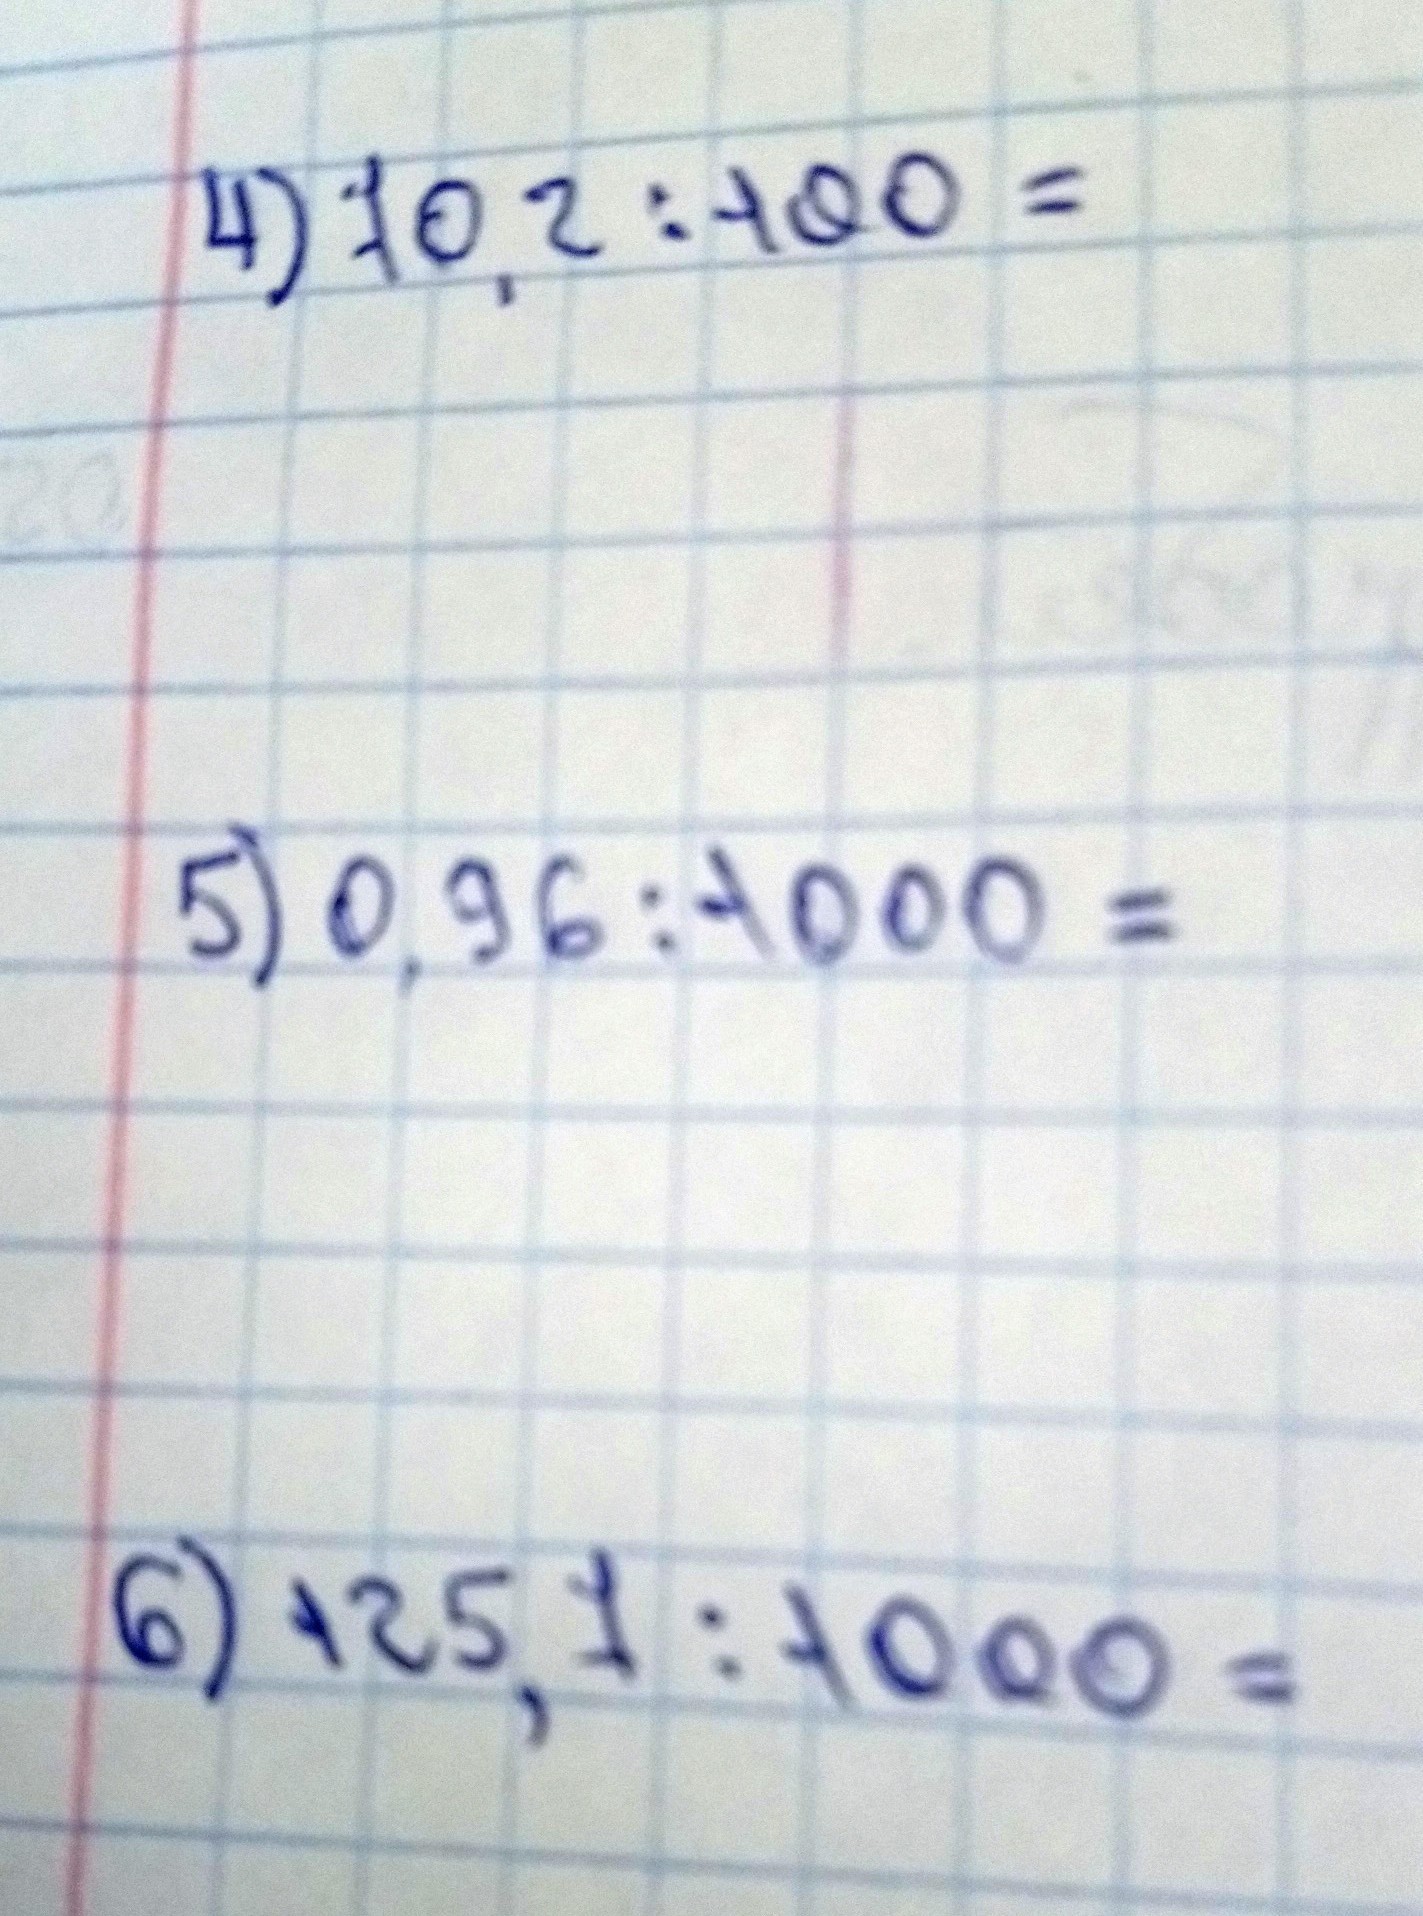 4) 70,2 : 100 =
5) 0,96 : 1000 =
6) 125,7 : 1000 =